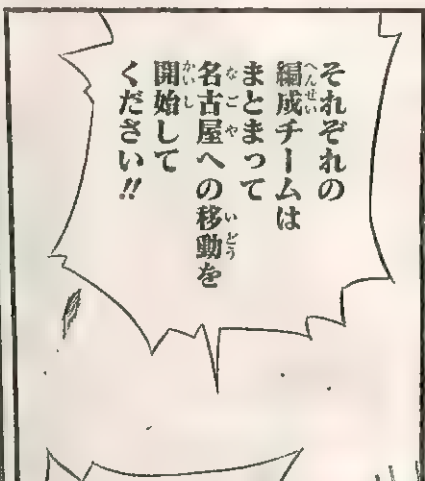 それぞれの
編成チームは
まとまって
名古屋への移動を
開始して
ください!!